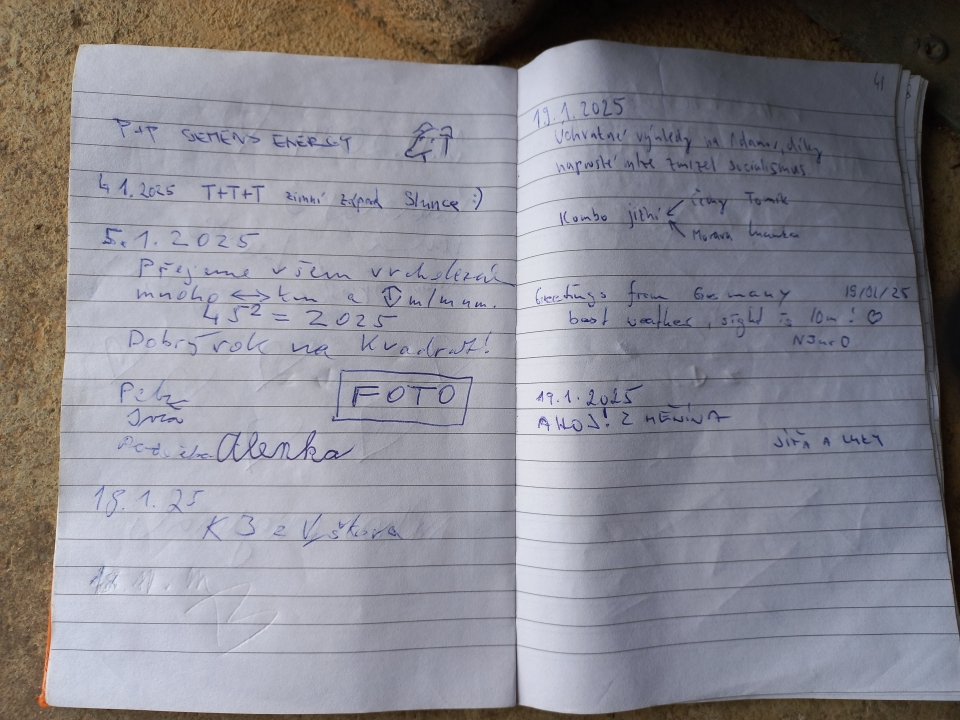 P+P SIEMENS ENERGY
4.1.2025 T+T+T zimní západ Slunce :)
5.1.2025
Přejeme všem vrcholezcům
mnoho ↔ km a ↕ m/mnm.
45² = 2025
Dobrý rok na Kvadrát!
Petr
FOTO
Alenka
18.1.25
K 3 z Vyškova
41
19.1.2025
Úchvatné výhledy na Adamov, díky
naprosté mlze zmizel socialismus
Kombo jižní
Čechy Tomík
Morava
Greetings from Germany 19/01/25
best weather, sight is 10m! ♡
19.1.2025
AHOJ! Z MĚNÍNA
JÍŘA A LUKY